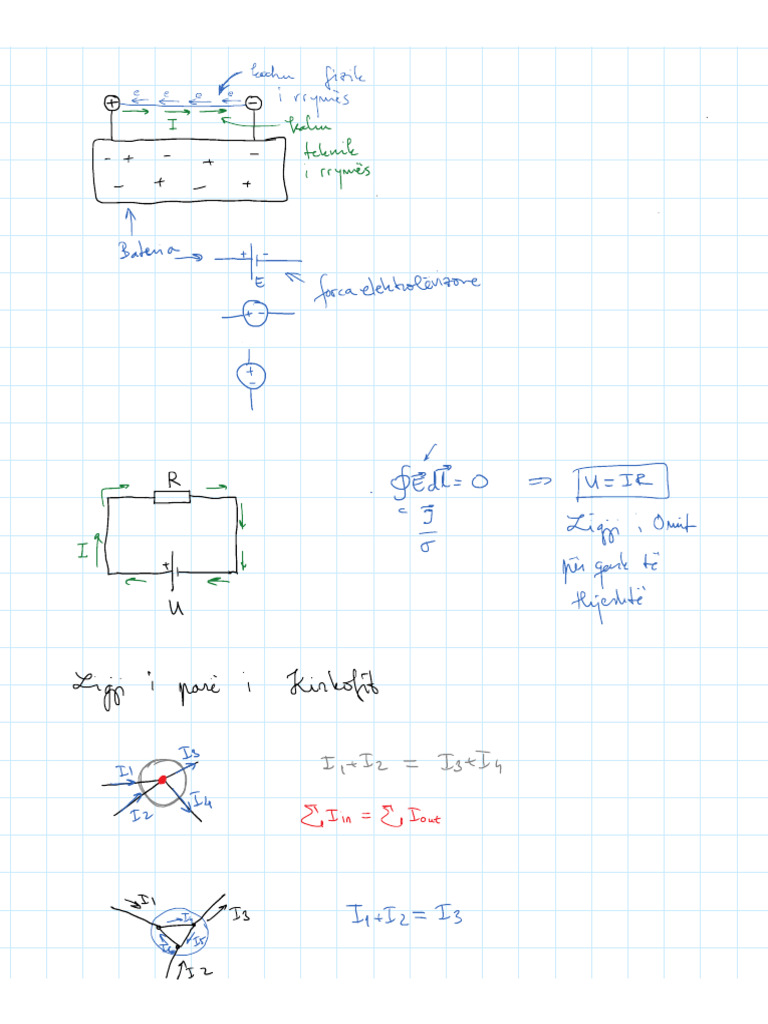 kahu fizik
i rrymës
e e e e
+ -
I
kahu
teknik
i rrymës
- + - + -
- + - +
Bateria
+ -
E
forca elektrolëvizore
+ -
+
-
R
I
+
U
∮E⃗dl⃗ = 0 ⇒ U = IR
c
J⃗
σ
Ligji i Omit
për qark të
thjeshtë
Ligji i parë i Kirkofit
I3
I1
I4
I2
I1+I2 = I3+I4
∑ Iin = ∑ Iout
I1
I4
I3
I5
I2
I1+I2 = I3